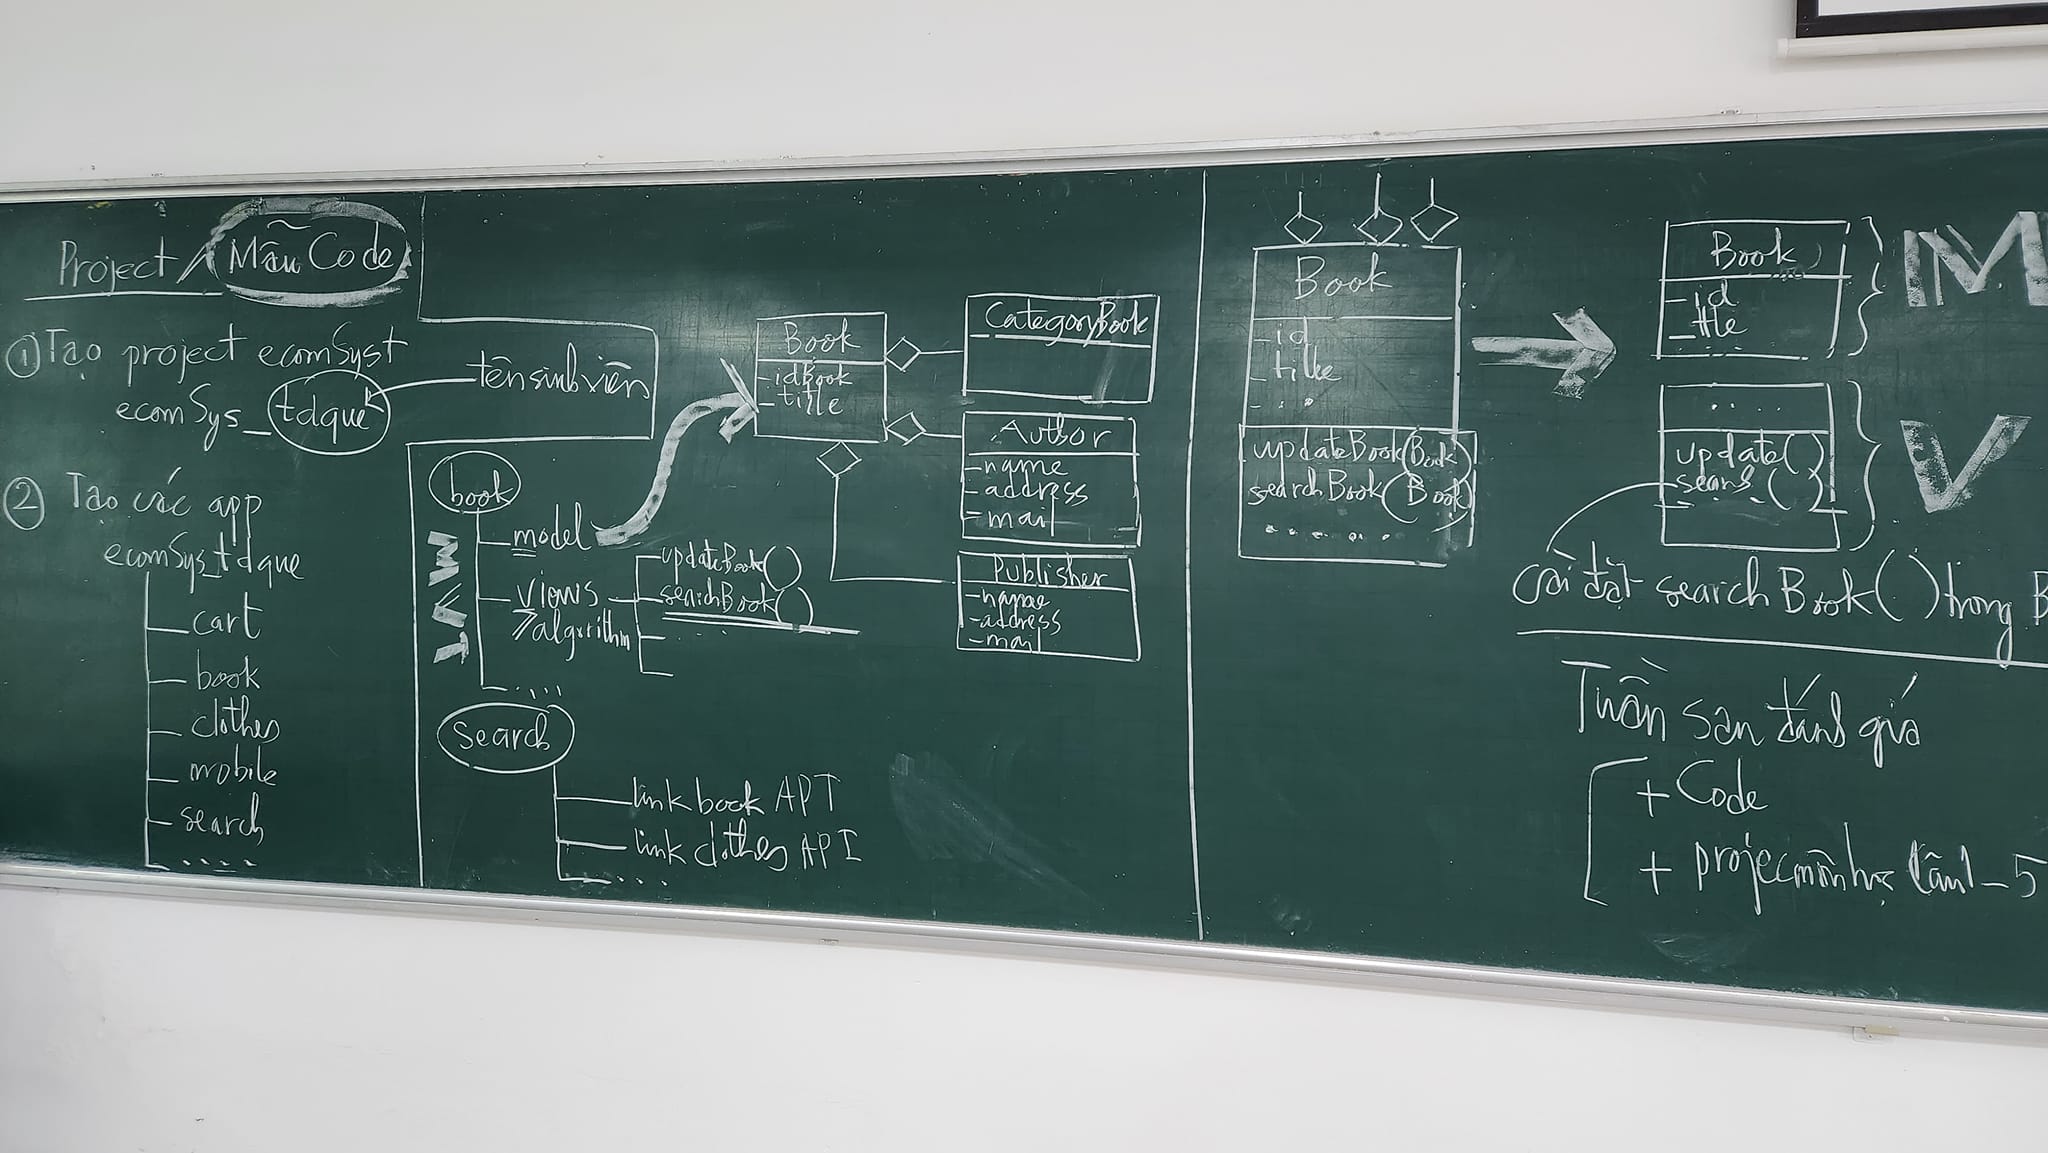 Project / Mẫu Code
① Tạo project ecomSyst
ecomSys_tdque
tên sinh viên
② Tạo các app
ecomSys_tdque
cart
book
clothes
mobile
search
.....
book
MVT
model
views
algorithm
updateBook()
searchBook()
.....
search
link book API
link clothes API
....
Book
- idBook
- title
CategoryBook
Author
- name
- address
- mail
Publisher
- name
- address
- mail
Book
- id
- title
- . .
updateBook(Book)
searchBook(Book)
.......
Book
- id
- title
M
....
update()
search()
V
cài đặt searchBook() trong B
Tuần sau đánh giá
+ Code
+ projec môn học lần 1-5